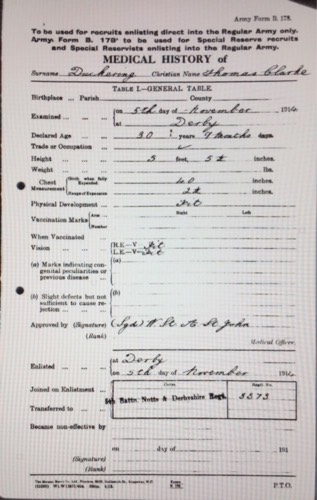 Army Form B. 178.
To be used for recruits enlisting direct into the Regular Army only.
Army Form B. 178A to be used for Special Reserve recruits
and Special Reservists enlisting into the Regular Army.
MEDICAL HISTORY of
Surname Duckering Christian Name Thomas Clarke
TABLE I.—GENERAL TABLE.
Birthplace ... Parish County
Examined ... on 5th day of November 1914
at Derby
Declared Age ... 30 years 9 months days.
Trade or Occupation ...
Height ... 5 feet, 5½ inches.
Weight ... lbs.
Chest Measurement Girth when fully Expanded. 40 inches.
Range of Expansion 2½ inches.
Physical Development ... Fit
Right Left
Vaccination Marks Arm
Number
When Vaccinated
Vision ... R.E.—V Fit
L.E.—V Fit
(a) Marks indicating congenital peculiarities or previous disease ... (a)
(b) Slight defects but not sufficient to cause rejection ... (b)
Approved by (Signature) (Sgd) W St A St John
(Rank) Medical Officer.
Enlisted ... at Derby
on 5th day of November 1914
Corps Regtl. No.
Joined on Enlistment ... 5th Battn Notts & Derbyshire Regt. 3573
Transferred to ...
Became non-effective by
on day of 191
(Signature)
(Rank)
P.T.O.